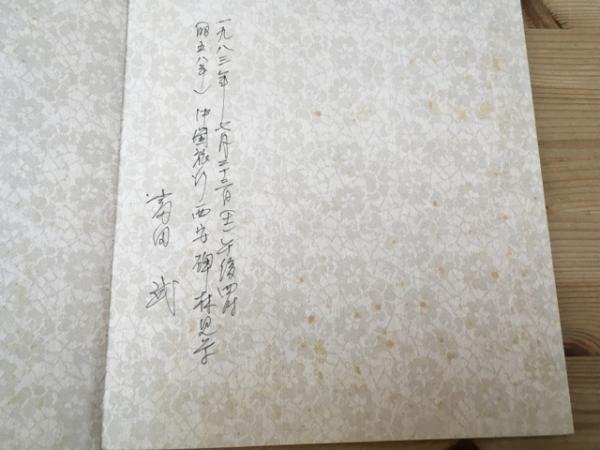 一九八三年七月二十三日(土)午後四時
(昭五八年)中国旅行西安碑林見学
富田 武